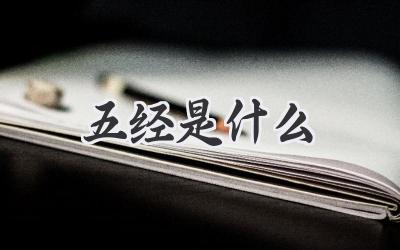 五经是什么